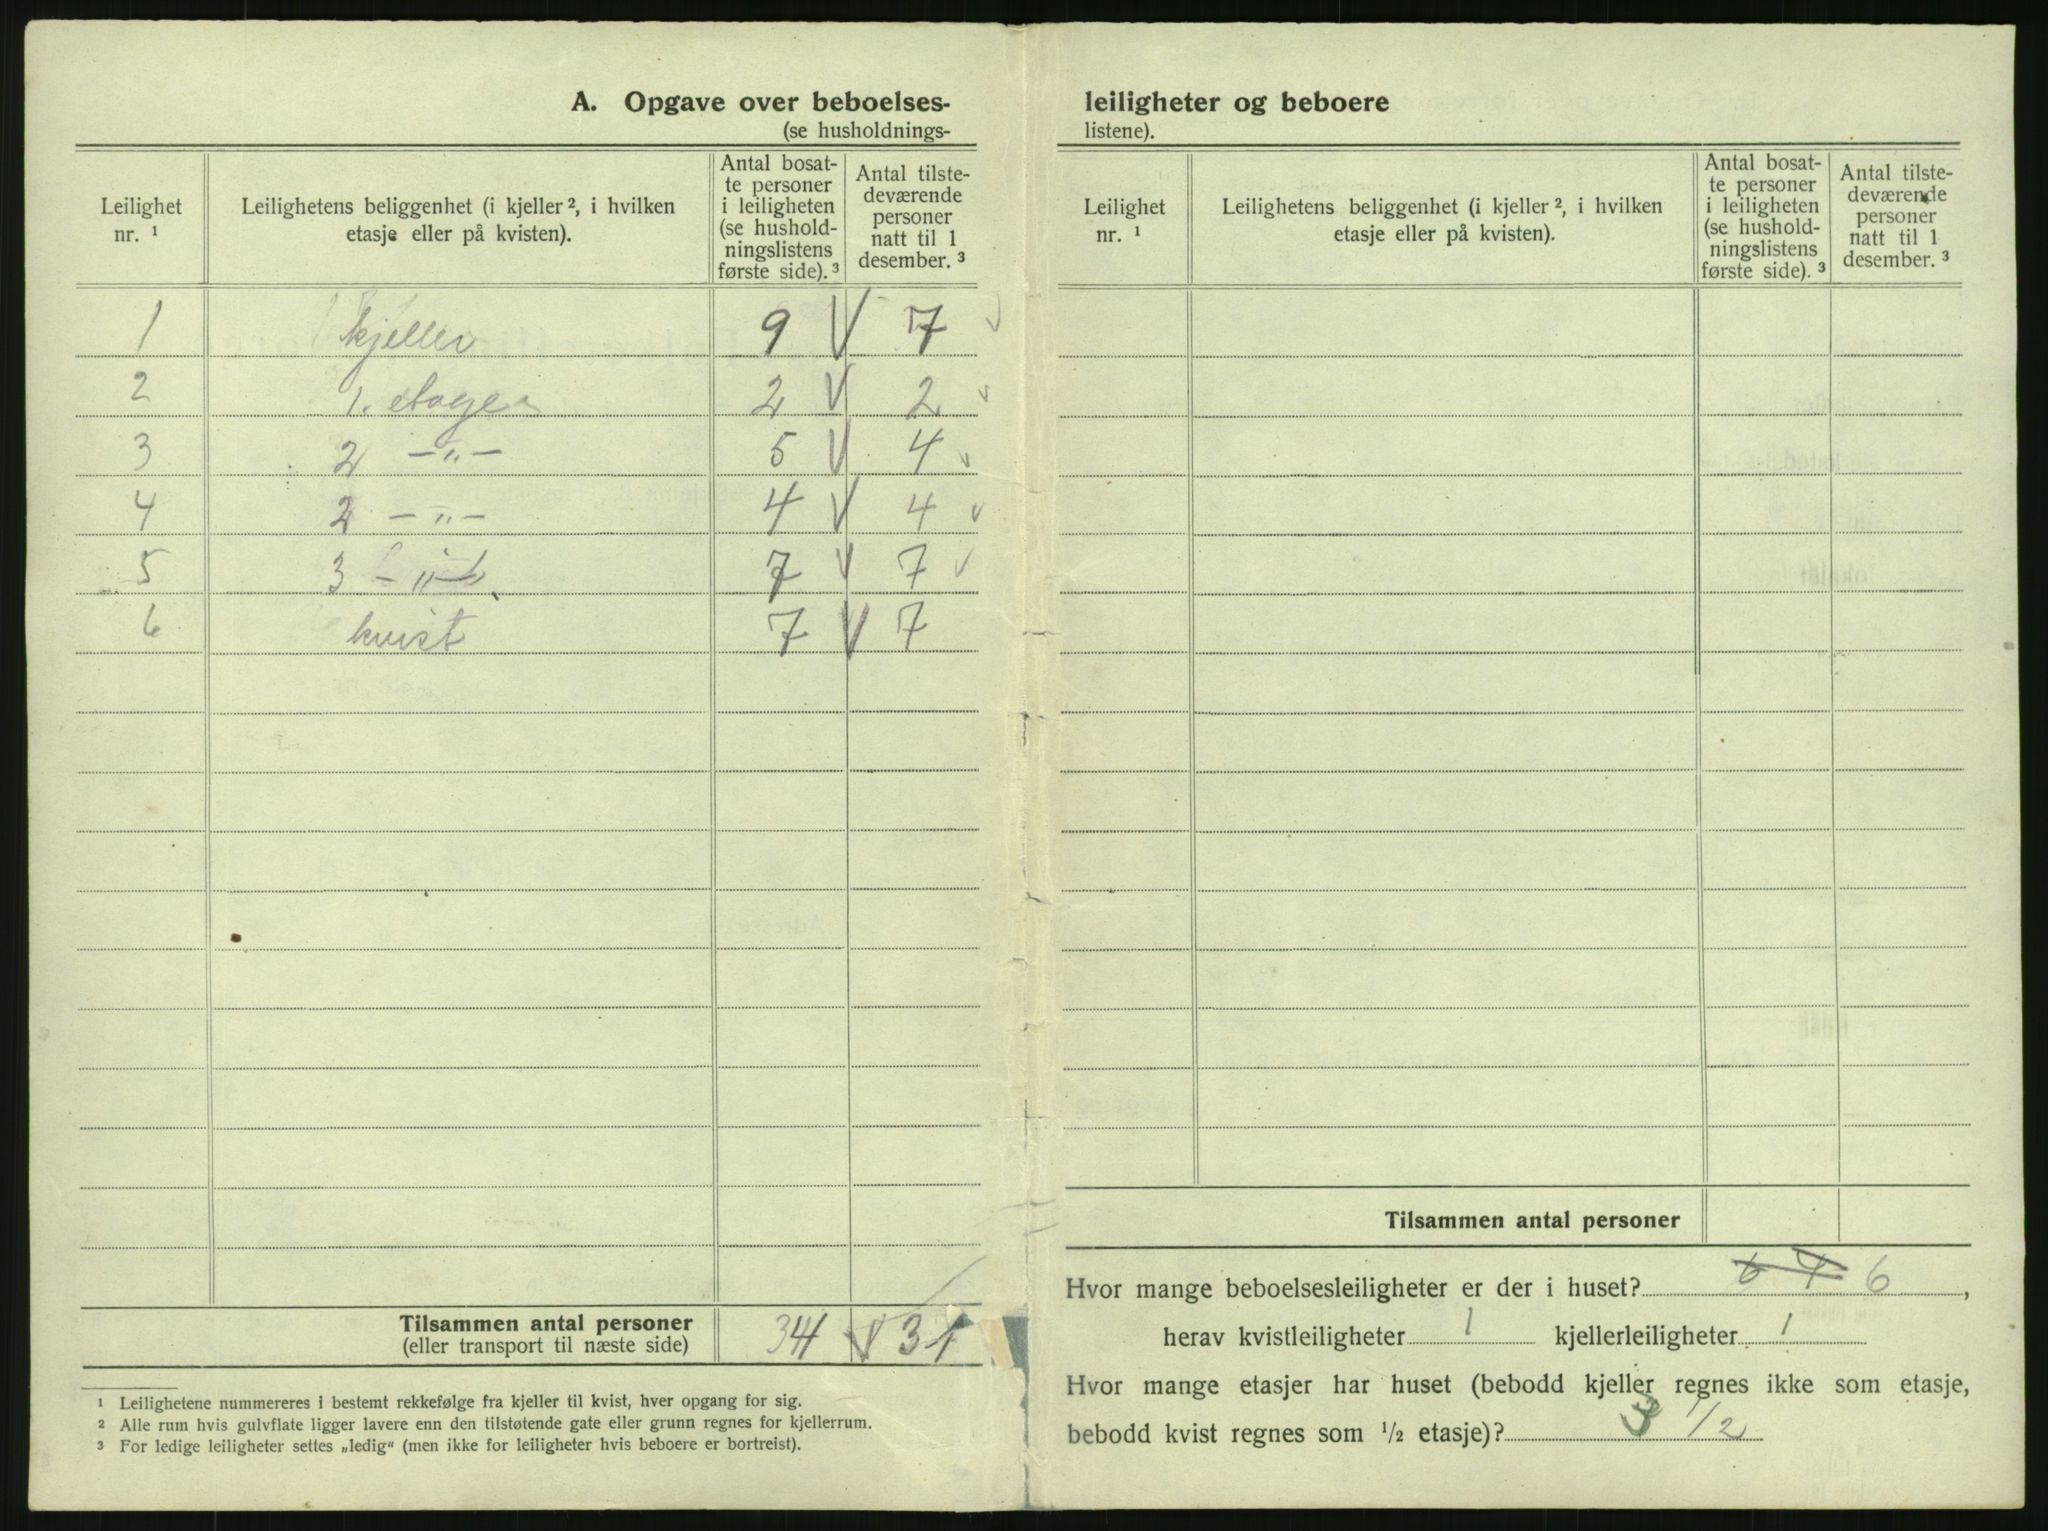 A. Opgave over beboelses-
(se husholdnings-
Leilighet nr. ¹
Leilighetens beliggenhet (i kjeller ², i hvilken etasje eller på kvisten).
Antal bosat-
te personer
i leiligheten
(se hushold-
ningslistens
første side). ³
Antal tilste-
deværende
personer
natt til 1
desember. ³
1 kjeller 9 V 7
2 1. etage 2 V 2
3 2 —„— 5 V 4
4 2 —„— 4 V 4
5 3 —„— 7 V 7
6 kvist 7 V 7
Tilsammen antal personer 34 V 31
(eller transport til næste side)
¹ Leilighetene nummereres i bestemt rekkefølge fra kjeller til kvist, hver opgang for sig.
² Alle rum hvis gulvflate ligger lavere enn den tilstøtende gate eller grunn regnes for kjellerrum.
³ For ledige leiligheter settes „ledig“ (men ikke for leiligheter hvis beboere er bortreist).
leiligheter og beboere
listene).
Leilighet nr. ¹
Leilighetens beliggenhet (i kjeller ², i hvilken etasje eller på kvisten).
Antal bosat-
te personer
i leiligheten
(se hushold-
ningslistens
første side). ³
Antal tilste-
deværende
personer
natt til 1
desember. ³
Tilsammen antal personer
Hvor mange beboelsesleiligheter er der i huset? 6,
herav kvistleiligheter 1 kjellerleiligheter 1
Hvor mange etasjer har huset (bebodd kjeller regnes ikke som etasje,
bebodd kvist regnes som ½ etasje)? 3 ½